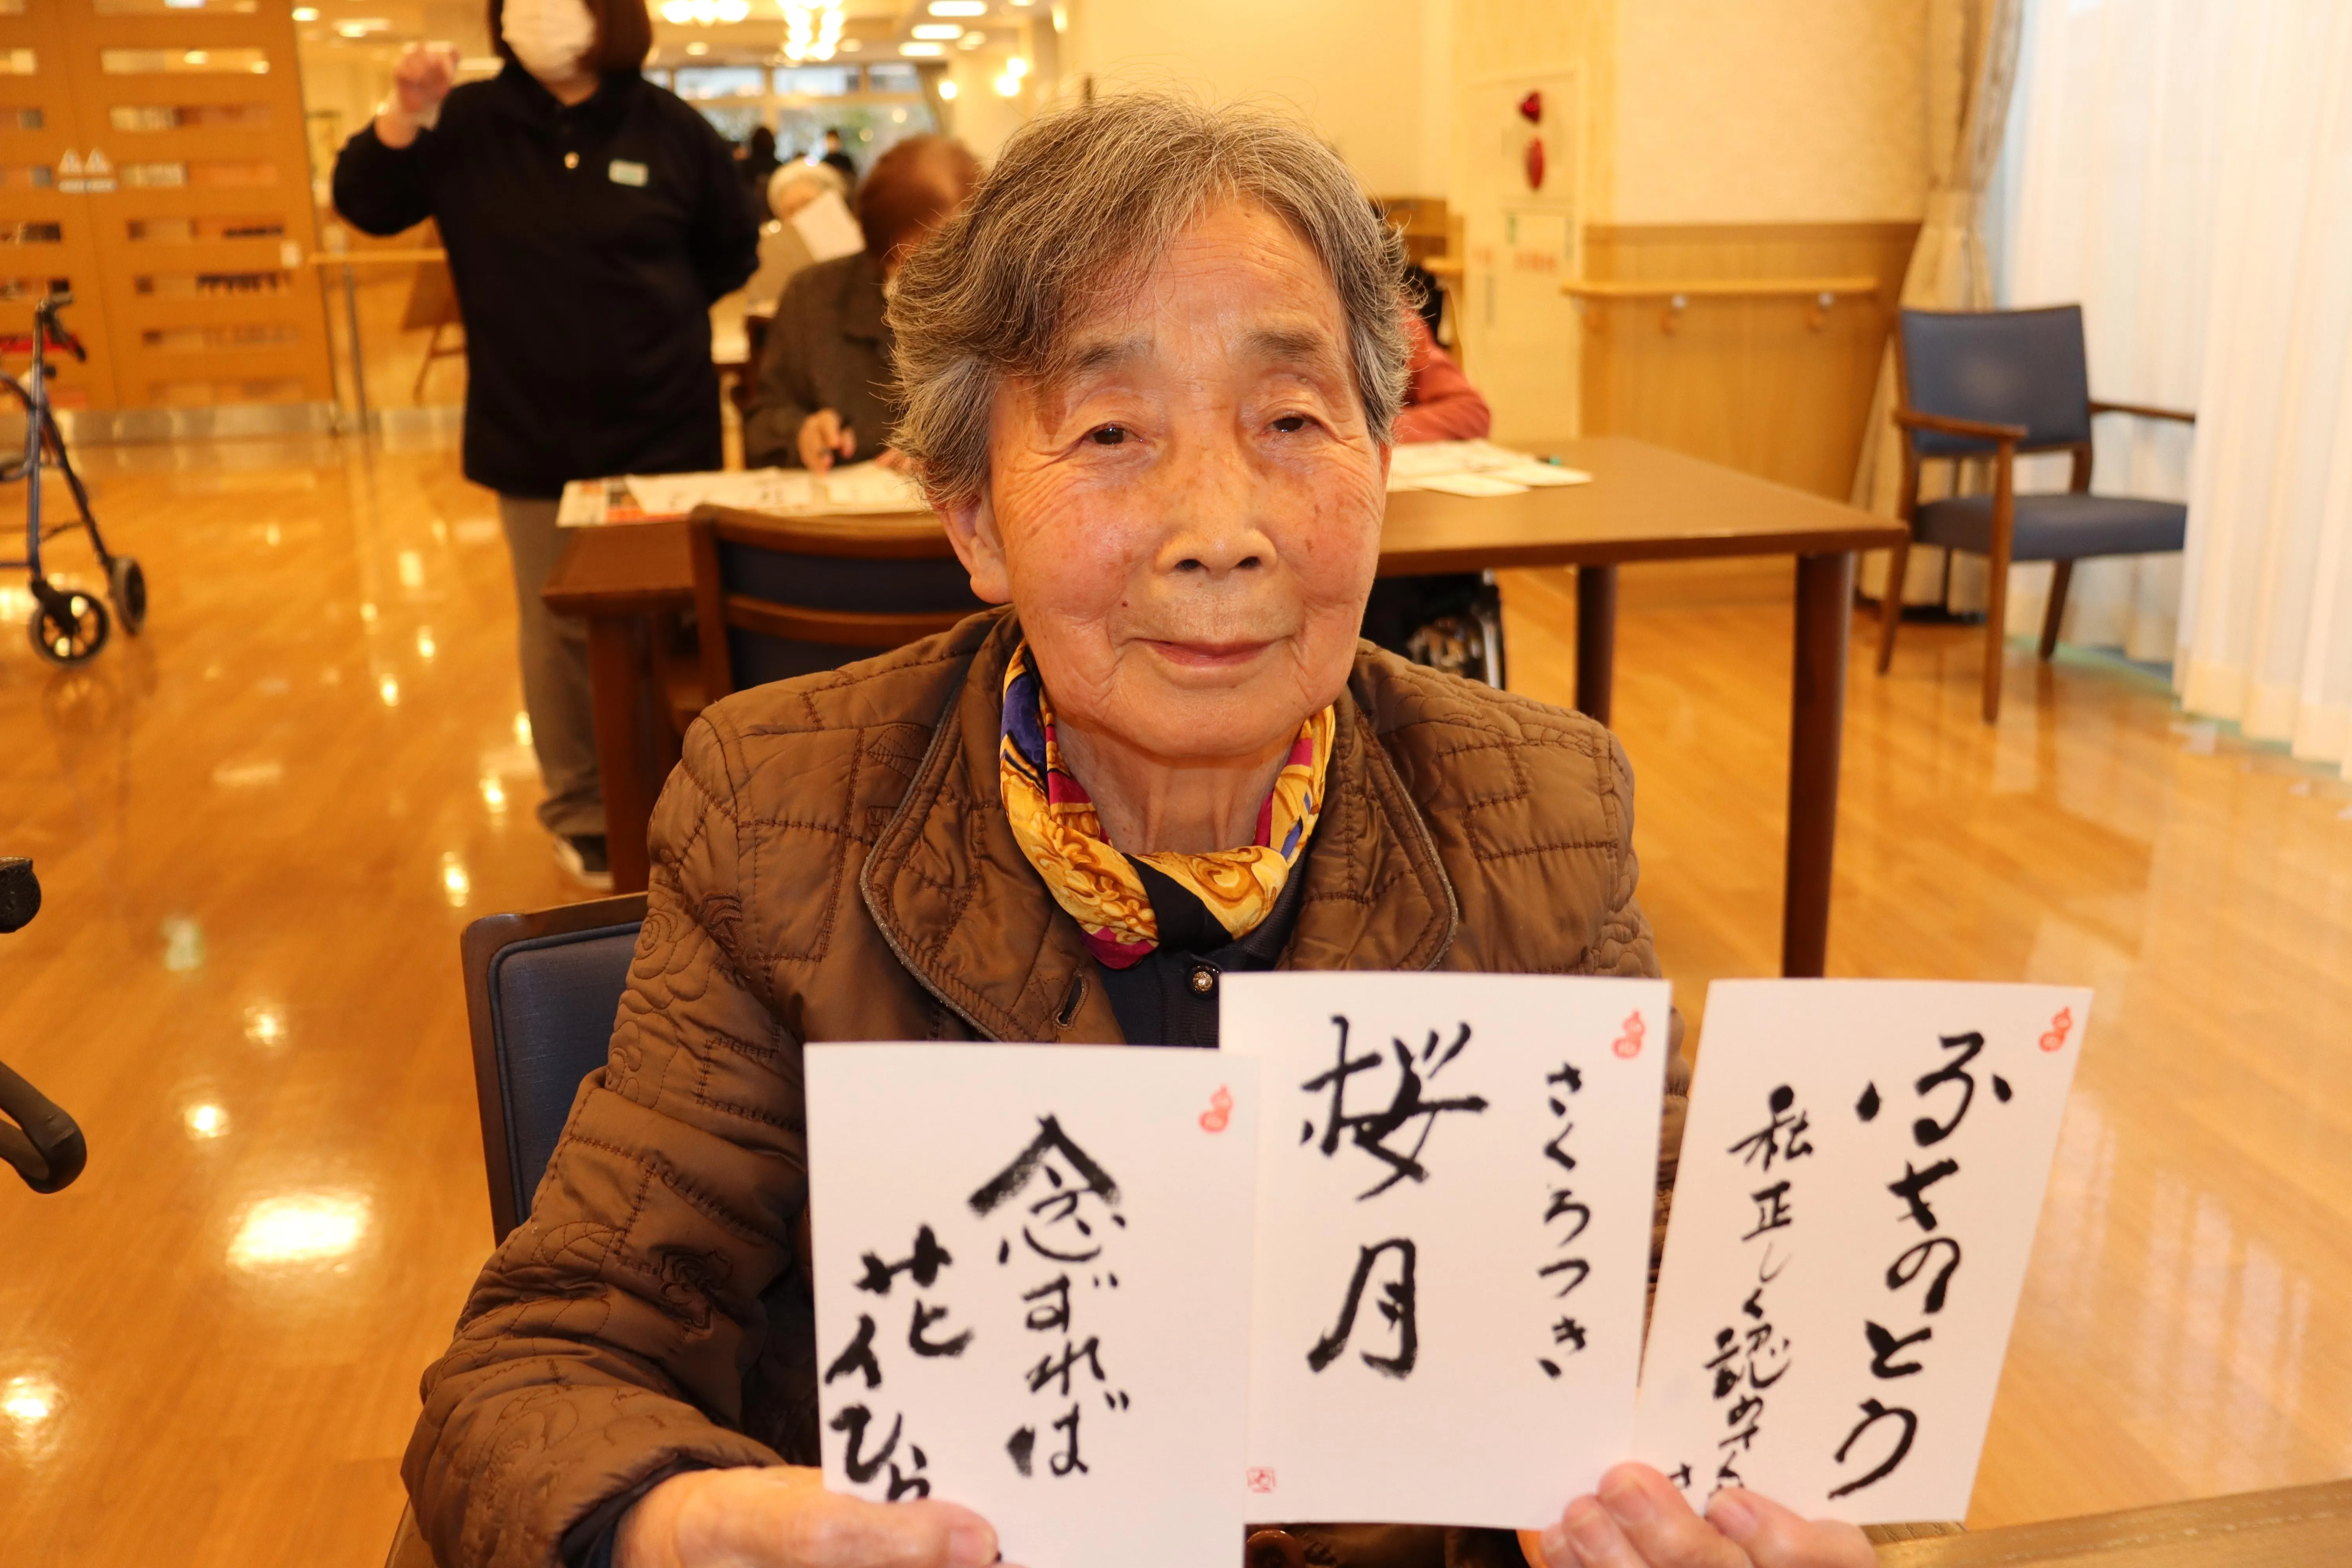 念ずれば
花ひら
さくらつき
桜月
ふきのとう
私正しく認め